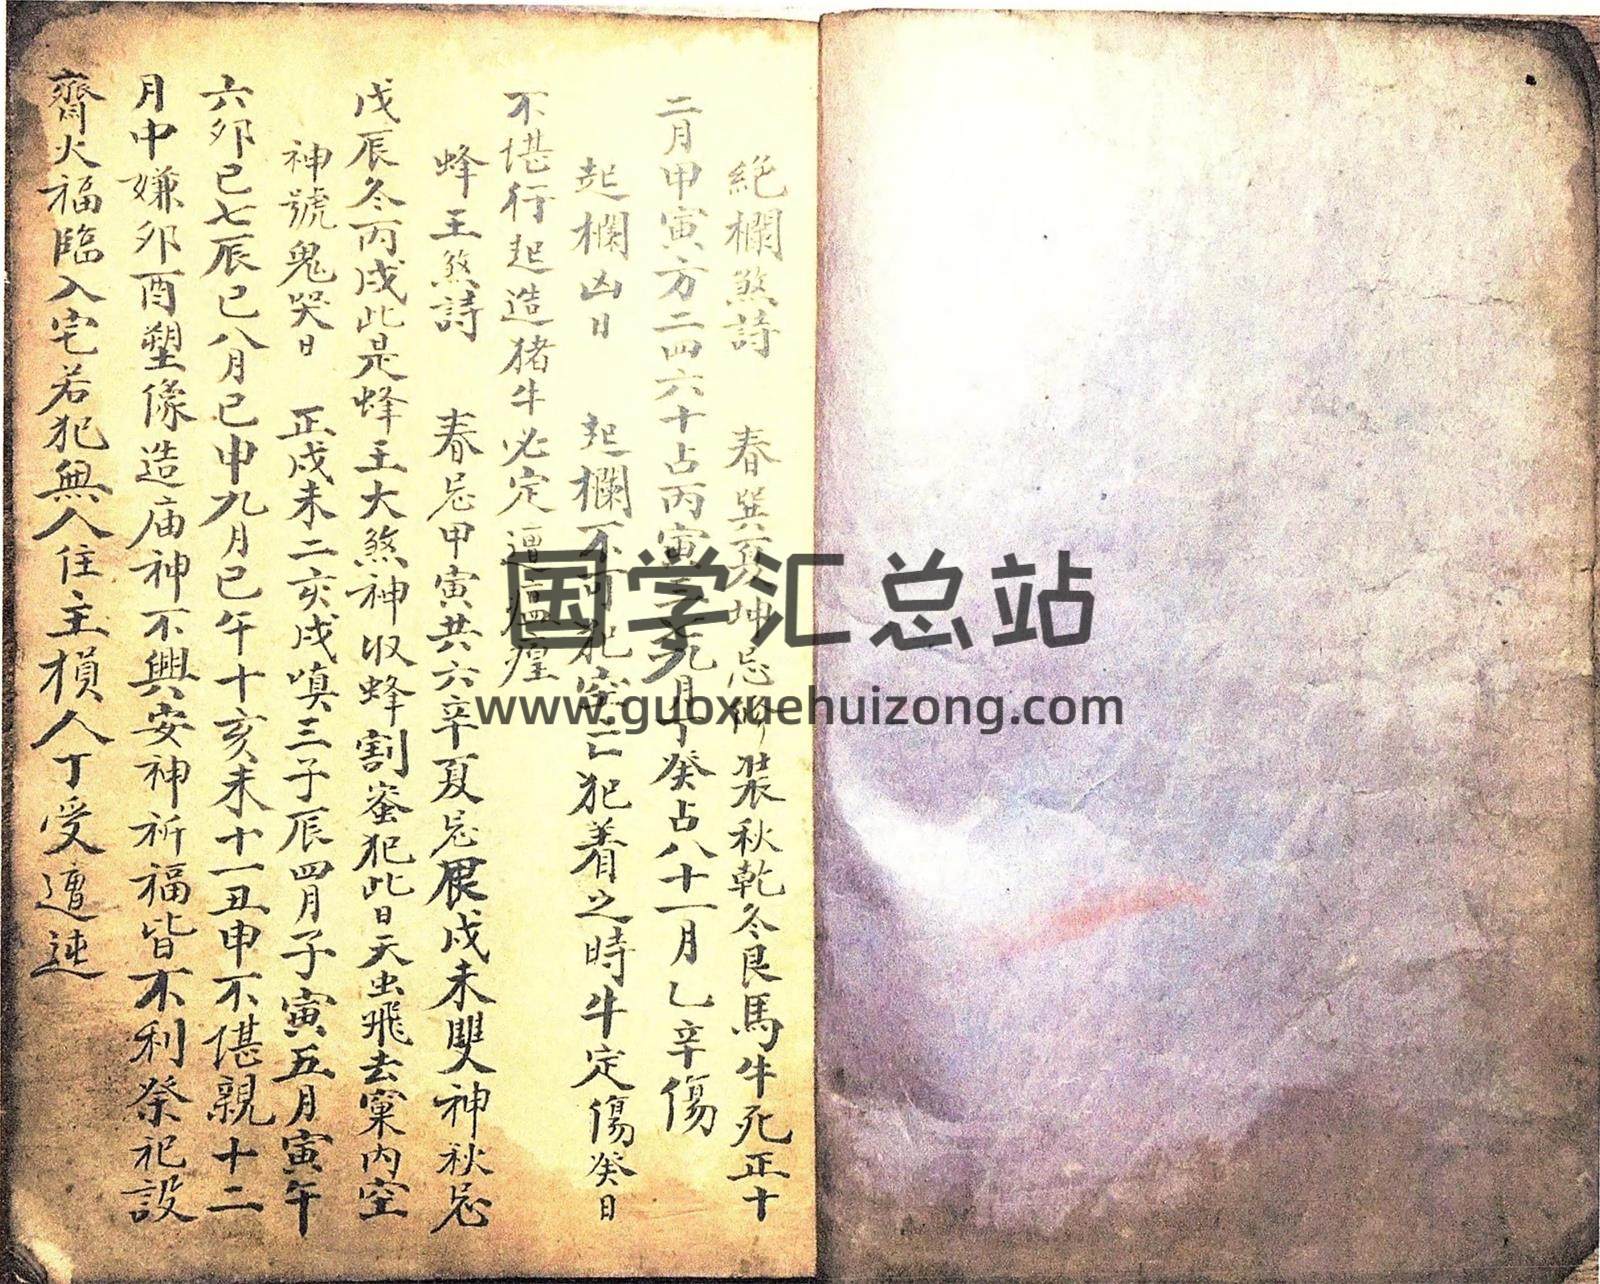 絶欄煞詩 春巽夏坤忌 裝秋乾冬艮馬牛死正十
二月甲寅方二四六十占丙寅 九月 癸占八十一月乙辛傷
起欄凶日 起欄不可犯 亡犯着之時牛定傷癸日
不堪行起造猪牛必定遭瘟瘟
蜂王煞詩 春忌甲寅共六辛夏忌 戌未雙神秋忌
戊辰冬丙戌此是蜂王大煞神收蜂割蜜犯此日天虫飛去窠内空
神號鬼哭日 正戌未二亥戌嗔三子辰四月子寅五月寅午
六卯巳七辰巳八月巳申九月巳午十亥未十一丑申不堪親十二
月中嫌卯酉塑像造庙神不興安神祈福皆不利祭祀設
齊火福臨入宅若犯無人住主損人丁受遭迍
国学汇总站
www.guoxuehuizong.com